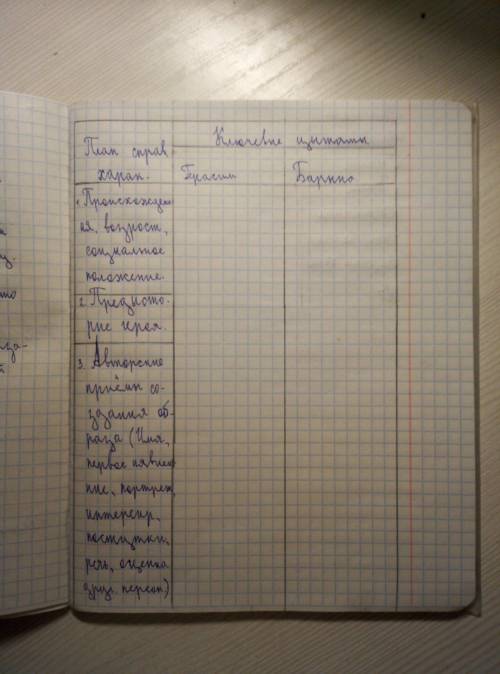 Ключевые цытаты
План справ.
харак.
Герасим
Барыня
1. Происхожден
ия, возраст,
социальное
положение.
2. Предисто-
рие героя.
3. Авторские
приёмы со-
здания об-
раза (Имя,
первое появлен
ие, портрет,
интерьер,
поступки,
речь, оценка
друг. персон.)